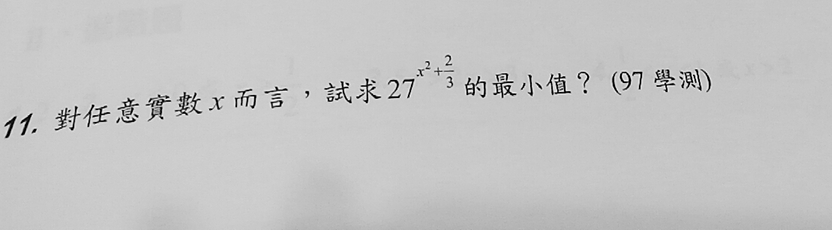 11. 對任意實數 x 而言，試求 27^{x^2+\frac{2}{3}} 的最小值？ (97 學測)